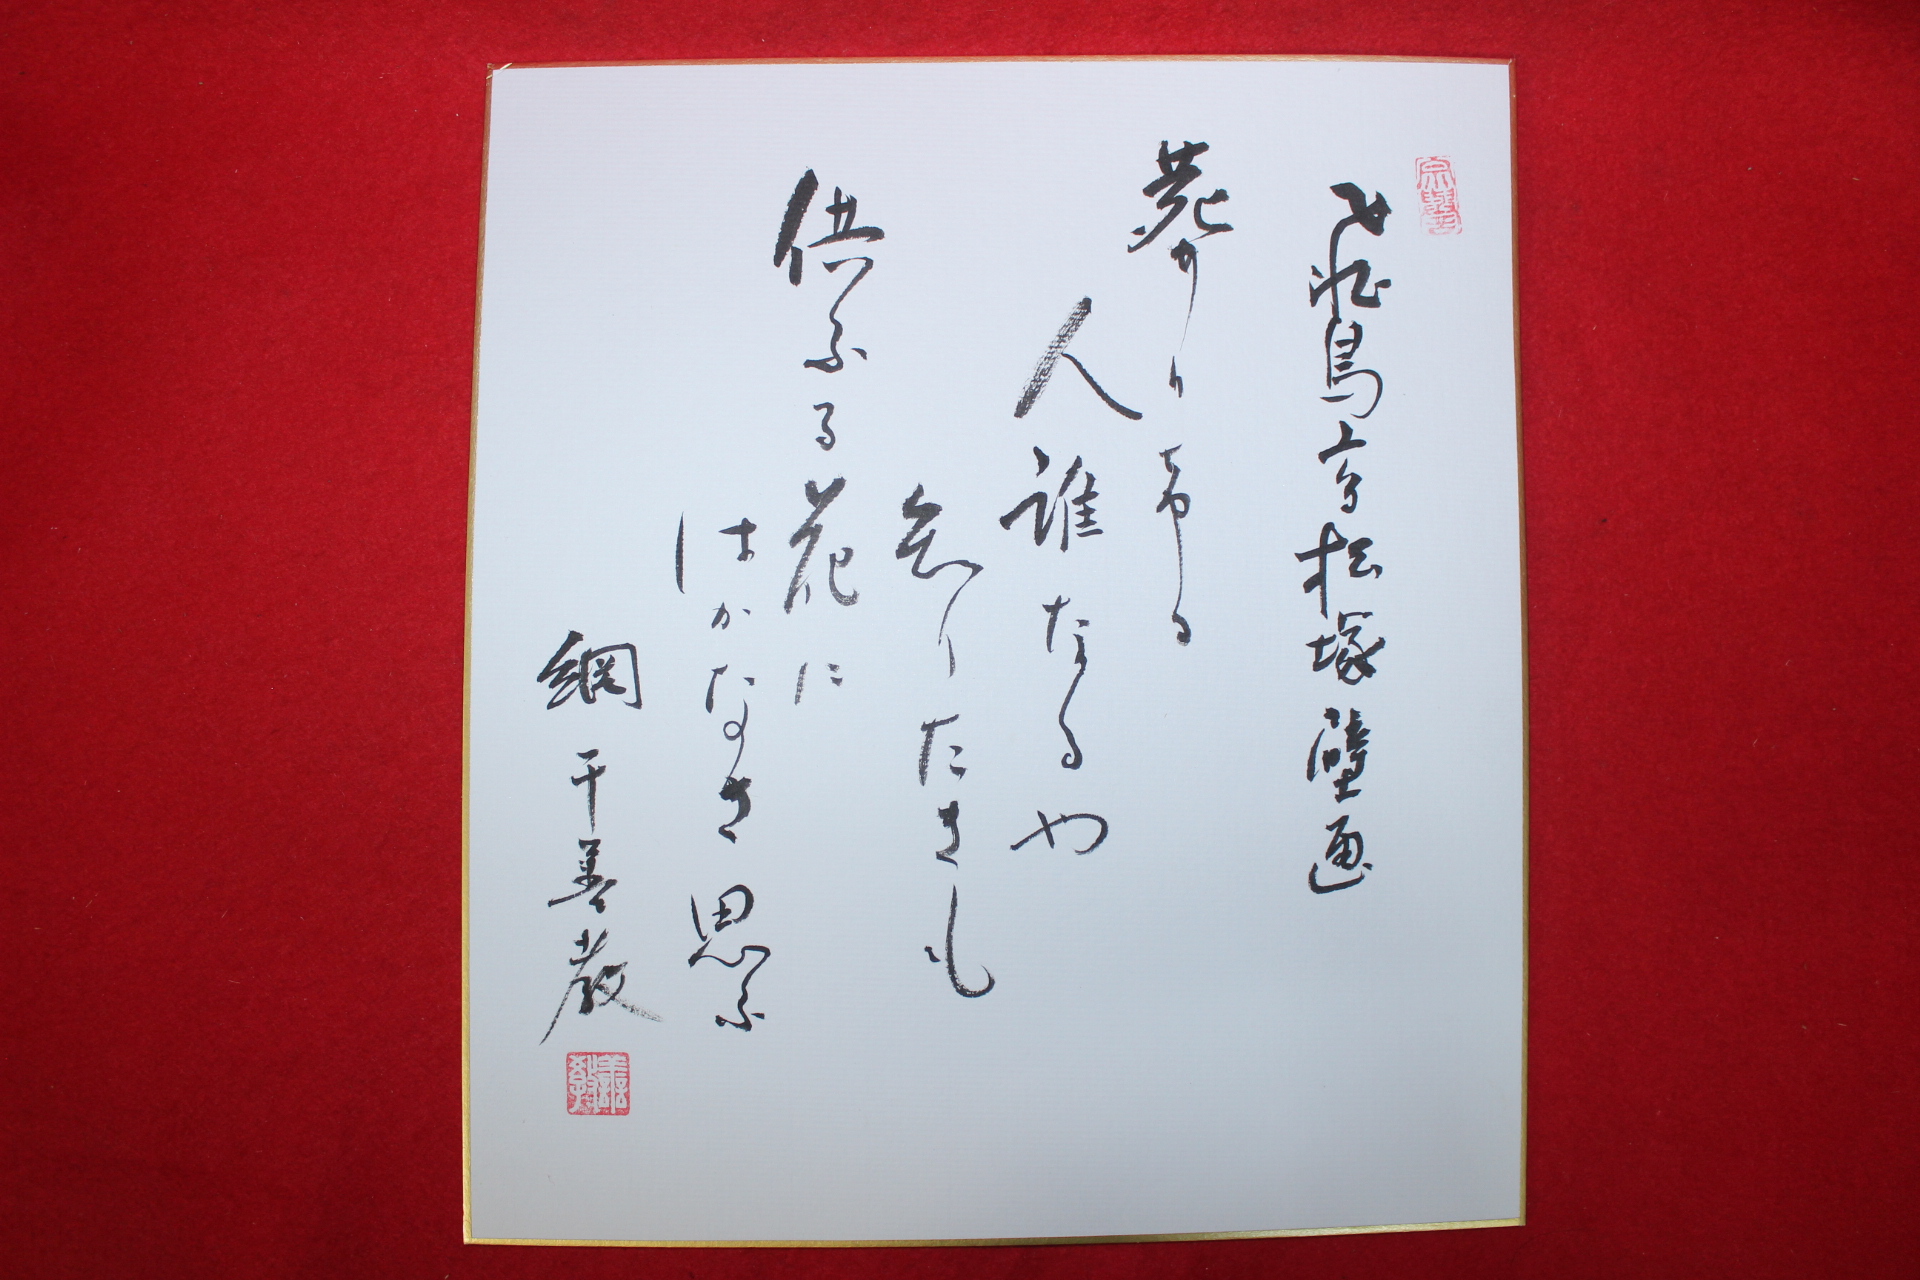 飛鳥高松塚壁画
葬り
人誰なるや
知りたきも
供ふる花に
はかなさ思ふ
網干善教
善教